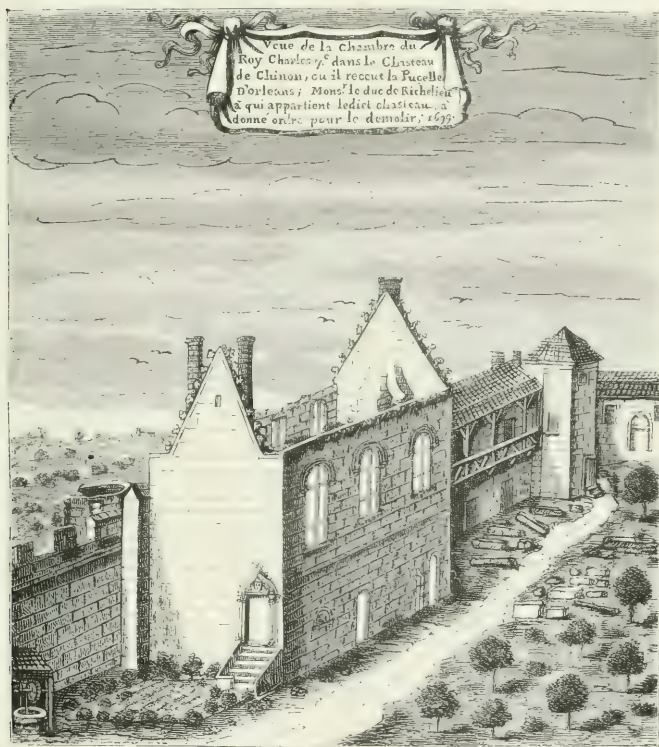 Veue de la chambre du
Roy Charles 7.e dans le Chasteau
de Chinon, ou il receut la Pucelle
D'orleans; Mons.r le duc de Richelieu
à qui appartient ledict chasteau, a
donné ordre pour le demolir; 1699.